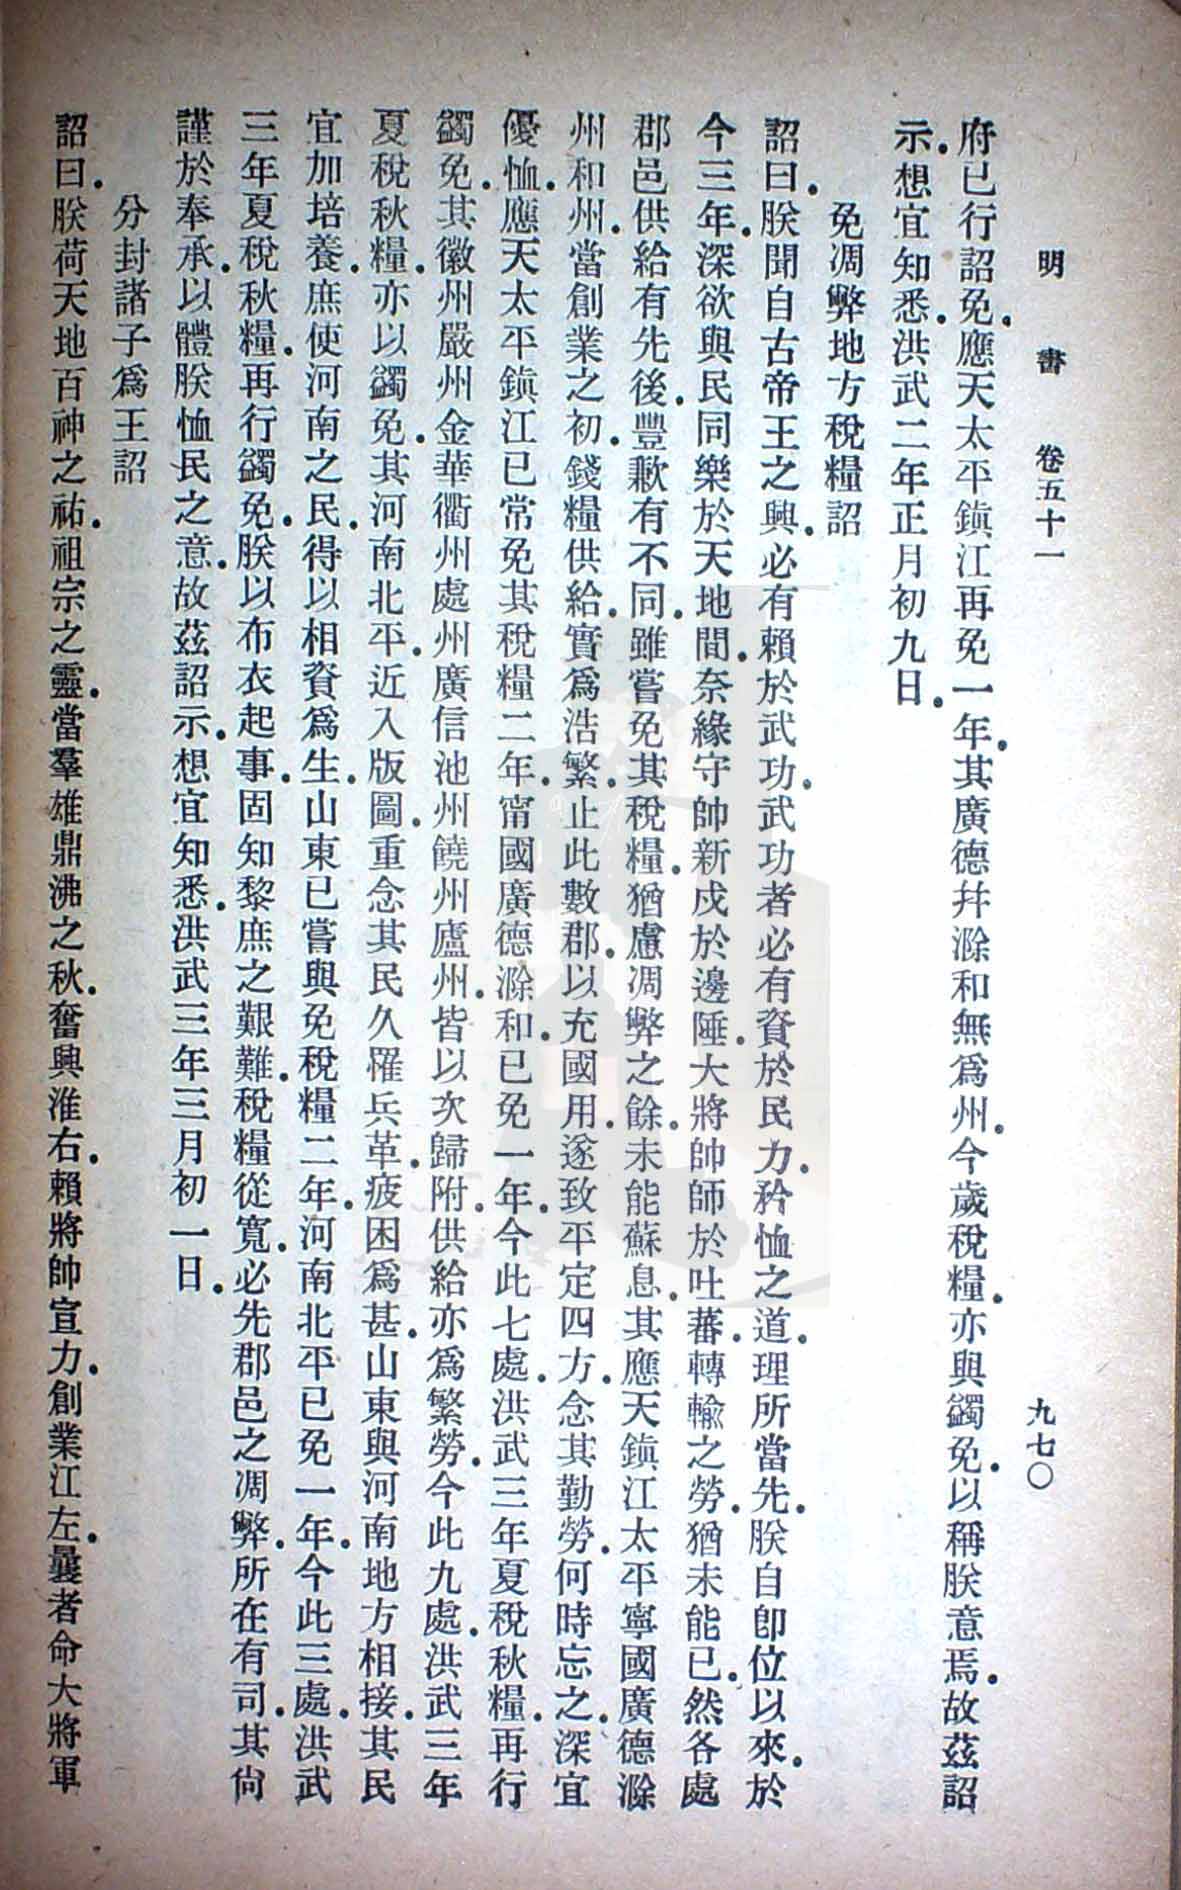 明書 卷五十一 九七〇
府已行詔免.應天太平鎮江再免一年.其廣德幷滁和無爲州.今歲稅糧.亦與蠲免.以稱朕意焉.故茲詔
示.想宜知悉.洪武二年正月初九日.
免凋弊地方稅糧詔
詔曰.朕聞自古帝王之興.必有賴於武功.武功者必有資於民力.矜恤之道.理所當先.朕自卽位以來.於
今三年.深欲與民同樂於天地間.奈緣守帥新戍於邊陲.大將帥師於吐蕃.轉輸之勞.猶未能已.然各處
郡邑供給有先後.豐歉有不同.雖嘗免其稅糧.猶慮凋弊之餘.未能蘇息.其應天鎮江太平寧國廣德滁
州和州.當創業之初.錢糧供給.實爲浩繁.止此數郡.以充國用.遂致平定四方.念其勤勞.何時忘之.深宜
優恤.應天太平鎮江已常免其稅糧二年.甯國廣德滁和.已免一年.今此七處.洪武三年夏稅秋糧.再行
蠲免.其徽州嚴州金華衢州處州廣信池州饒州廬州.皆以次歸附.供給亦爲繁勞.今此九處.洪武三年
夏稅秋糧.亦以蠲免.其河南北平.近入版圖.重念其民久罹兵革.疲困爲甚.山東與河南地方相接.其民
宜加培養.庶使河南之民.得以相資爲生.山東已嘗與免稅糧二年.河南北平已免一年.今此三處.洪武
三年夏稅秋糧.再行蠲免.朕以布衣起事.固知黎庶之艱難.稅糧從寬.必先郡邑之凋弊.所在有司.其尙
謹於奉承.以體朕恤民之意.故茲詔示.想宜知悉.洪武三年三月初一日.
分封諸子爲王詔
詔曰.朕荷天地百神之祐.祖宗之靈.當羣雄鼎沸之秋.奮興淮右.賴將帥宣力.創業江左.曩者命大將軍